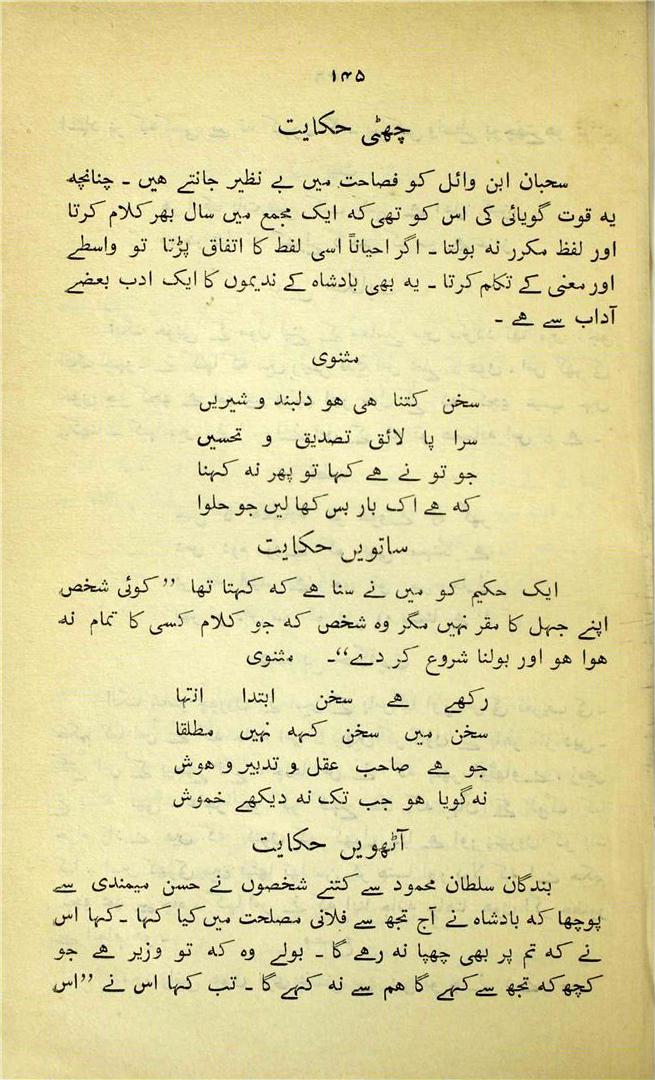 ۱۴۵
چھٹی حکایت
سحبان ابن وائل کو فصاحت میں بے نظیر جانتے ہیں ۔ چنانچہ
یہ قوت گویائی کی اس کو تھی کہ ایک مجمع میں سال بھر کلام کرتا
اور لفظ مکرر نہ بولتا ۔ اگر احیاناً اسی لفط کا اتفاق پڑتا تو واسطے
اور معنی کے تکلم کرتا ۔ یہ بھی بادشاہ کے ندیموں کا ایک ادب بعضے
آداب سے ہے ۔
مثنوی
سخن کتنا ہی ہو دلبند و شیریں
سرا پا لائق تصدیق و تحسیں
جو تو نے ہے کہا تو پھر نہ کہنا
کہ ہے اک بار بس کھا لیں جو حلوا
ساتویں حکایت
ایک حکیم کو میں نے سنا ہے کہ کہتا تھا ”کوئی شخص
اپنے جہل کا مقر نہیں مگر وہ شخص کہ جو کلام کسی کا تمام نہ
ہوا ہو اور بولنا شروع کر دے“۔ مثنوی
رکھے ہے سخن ابتدا انتہا
سخن میں سخن کہہ نہیں مطلقا
جو ہے صاحب عقل و تدبیر و ہوش
نہ گویا ہو جب تک نہ دیکھے خموش
آٹھویں حکایت
بندگان سلطان محمود سے کتنے شخصوں نے حسن میمندی سے
پوچھا کہ بادشاہ نے آج تجھ سے فلانی مصلحت میں کیا کہا ۔ کہا اس
نے کہ تم پر بھی چھپا نہ رہے گا ۔ بولے وہ کہ تو وزیر ہے جو
کچھ کہ تجھ سے کہے گا ہم سے نہ کہے گا ۔ تب کہا اس نے ”اس